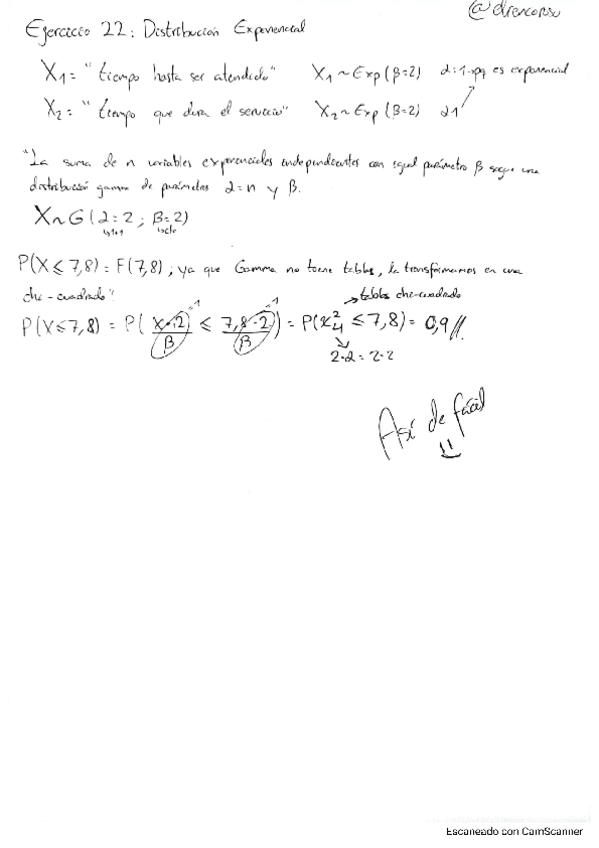 @drenconsu
Ejercicio 22: Distribución Exponencial
X1 = "tiempo hasta ser atendido" X1 ~ Exp (β=2) α=1 pq es exponencial
X2 = "tiempo que dura el servicio" X2 ~ Exp (β=2) α1
"La suma de n variables exponenciales independientes con igual parámetro β sigue una
distribución gamma de parámetros α=n y β.
X ~ G (α=2 ; β=2)
P(X ≤ 7,8) = F(7,8), ya que Gamma no tiene tablas, la transformamos en una
chi-cuadrado"
→ tablas chi-cuadrado
P(X ≤ 7,8) = P( X·2 / β ≤ 7,8·2 / β ) = P(χ²4 ≤ 7,8) = 0,9 //.
2·α = 2·2
Así de fácil
Escaneado con CamScanner